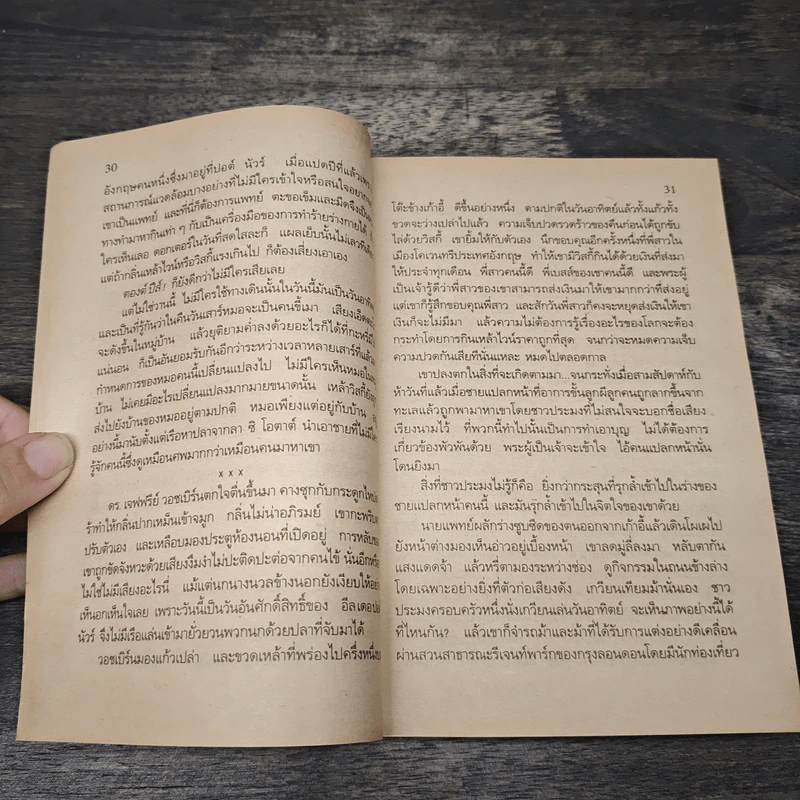 30
อังกฤษคนหนึ่งซึ่งมาอยู่ที่ปอต์ นัวร์ เมื่อแปดปีที่แล้วเพราะ
สถานการณ์แวดล้อมบางอย่างที่ไม่มีใครเข้าใจหรือสนใจอยาก
เขาเป็นแพทย์ และที่นี่ก็ต้องการแพทย์ ตะขอเข็มและมีดจึงเป็น
ทางทำมาหากินเท่า ๆ กับเป็นเครื่องมือของการทำร้ายร่างกายได้
ใครเห็นเลอ ดอกเตอร์ในวันที่สดใสละก็ แผลเย็บนั้นไม่เลวทีเดียว
แต่ถ้ากลิ่นเหล้าไวน์หรือวิสกี้แรงเกินไป ก็ต้องเสี่ยงเอาเอง
ตองต์ ปีส์! ก็ยังดีกว่าไม่มีใครเสียเลย
แต่ไม่ใช่วานนี้ ไม่มีใครใช้ทางเดินนั้นในวันนี้มันเป็นวันอาทิตย์
และเป็นที่รู้กันว่าในคืนวันเสาร์หมอจะเป็นคนขี้เมา เสียงเอ็ด
จะดังขึ้นในหมู่บ้าน แล้วยุติยามค่ำลงด้วยอะไรก็ได้ที่กะหรี่
แน่นอน ก็เป็นอันยอมรับกันอีกว่าระหว่างเวลาหลายเสาร์ที่แล้ว
กำหนดการของหมอคนนี้เปลี่ยนแปลงไป ไม่มีใครเห็นหมอใน
บ้าน ไม่เคยมีอะไรเปลี่ยนแปลงมากมายขนาดนั้น เหล้าวิสกี้ยัง
ส่งไปยังบ้านของหมออยู่ตามปกติ หมอเพียงแต่อยู่กับบ้าน
อย่างนี้มานับตั้งแต่เรือหาปลาจากลา ซิ โอตาต์ นำเอาชายที่ไม่มีใคร
รู้จักคนนี้ซึ่งดูเหมือนศพมากกว่าเหมือนคนมาหาเขา
x x x
ดร. เจฟฟรีย์ วอชเบิร์นตกใจตื่นขึ้นมา คางซุกกับกระดูกไหปลา
ร้าทำให้กลิ่นปากเหม็นเข้าจมูก กลิ่นไม่น่าอภิรมย์ เขากะพริบตา
ปรับตัวเอง และเหลือบมองประตูห้องนอนที่เปิดอยู่ การหลับของ
เขาถูกขัดจังหวะด้วยเสียงงึมงำไม่ปะติดปะต่อจากคนไข้ นั่นอีกหรือ
ไม่ใช่ไม่มีเสียงอะไรนี่ แม้แต่นกนางนวลข้างนอกยังเงียบให้อย่าง
เห็นอกเห็นใจเลย เพราะวันนี้เป็นวันอันศักดิ์สิทธิ์ของ อีล เดอ ปอต์
นัวร์ จึงไม่มีเรือแล่นเข้ามายั่วยวนพวกนกด้วยปลาที่จับมาได้
วอชเบิร์นมองแก้วเปล่า และขวดเหล้าที่พร่องไปครึ่งหนึ่งบน
31
โต๊ะข้างเก้าอี้ ดีขึ้นอย่างหนึ่ง ตามปกติในวันอาทิตย์แล้วทั้งแก้วทั้ง
ขวดจะว่างเปล่าไปแล้ว ความเจ็บปวดรวดร้าวของคืนก่อนได้ถูกขับ
ไล่ด้วยวิสกี้ เขายิ้มให้กับตัวเอง นึกขอบคุณอีกครั้งหนึ่งที่พี่สาวใน
เมืองโคเวนทรีประเทศอังกฤษ ทำให้เขามีวิสกี้กินได้ด้วยเงินที่ส่งมา
ให้ประจำทุกเดือน พี่สาวคนนี้ดี พี่เบสส์ของเขาคนนี้ดี และพระผู้
เป็นเจ้ารู้ดีว่าพี่สาวของเขาสามารถส่งเงินมาให้เขามากกว่าที่ส่งอยู่
แต่เขาก็รู้สึกขอบคุณพี่สาว และสักวันพี่สาวก็คงจะหยุดส่งเงินให้เขา
เงินก็จะไม่มีมา แล้วความไม่ต้องการรู้เรื่องอะไรของโลกจะต้อง
กระทำโดยการกินเหล้าไวน์ราคาถูกที่สุด จนกว่าจะหมดความเจ็บ
ความปวดกันเสียที่นั่นแหละ หมดไปตลอดกาล
เขาปลงตกในสิ่งที่จะเกิดตามมา...จนกระทั่งเมื่อสามสัปดาห์กับ
ห้าวันที่แล้วเมื่อชายแปลกหน้าที่อาการขั้นลูกผีลูกคนถูกลากขึ้นจาก
ทะเลแล้วถูกพามาหาเขาโดยชาวประมงที่ไม่สนใจจะบอกชื่อเสียง
เรียงนามไว้ ที่พวกนี้ทำไปนั้นเป็นการทำเอาบุญ ไม่ได้ต้องการ
เกี่ยวข้องพัวพันด้วย พระผู้เป็นเจ้าจะเข้าใจ ไอ้คนแปลกหน้านั่น
โดนยิงมา
สิ่งที่ชาวประมงไม่รู้ก็คือ ยิ่งกว่ากระสุนที่รุกล้ำเข้าไปในร่างของ
ชายแปลกหน้าคนนี้ และมันรุกล้ำเข้าไปในจิตใจของเขาด้วย
นายแพทย์ผลักร่างซูบซีดของตนออกจากเก้าอี้แล้วเดินโผเผไป
ยังหน้าต่างมองเห็นอ่าวอยู่เบื้องหน้า เขาลดมู่ลี่ลงมา หลับตากัน
แสงแดดจ้า แล้วหรี่ตามองระหว่างช่อง ดูกิจกรรมในถนนข้างล่าง
โดยเฉพาะอย่างยิ่งที่ตัวก่อเสียงดัง เกวียนเทียมม้านั่นเอง ชาว
ประมงครอบครัวหนึ่งนั่งเกวียนเล่นวันอาทิตย์ จะเห็นภาพอย่างนี้ได้
ที่ไหนกัน? แล้วเขาก็จำรถม้าและม้าที่ได้รับการแต่งอย่างดีเคลื่อน
ผ่านสวนสาธารณะรีเจนท์พาร์กของกรุงลอนดอนโดยมีนักท่องเที่ยว